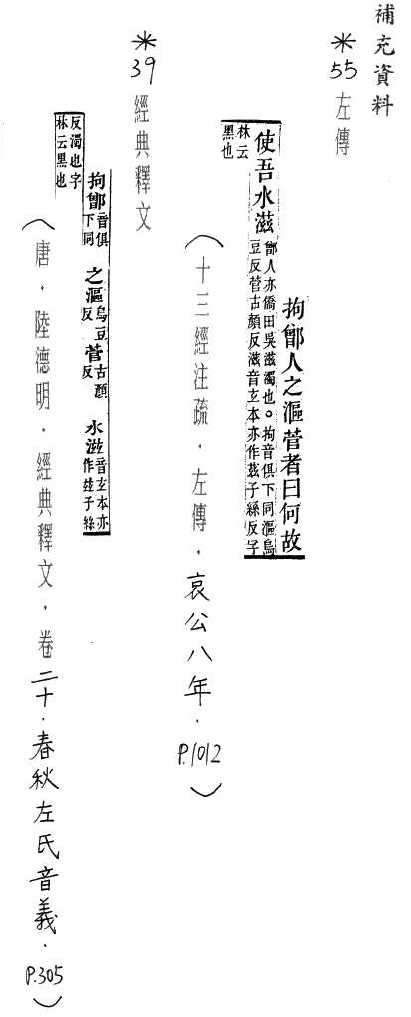 補充資料
*55 左傳
拘鄫人之漚菅者曰何故
使吾水滋 鄫人亦僑田吳滋濁也。拘音俱下同漚烏
豆反菅古顏反滋音玄本亦作茲子絲反字
林云
黑也
(十三經注疏.左傳.哀公八年.P.1012)
*39 經典釋文
拘鄫 音俱下同 之漚 烏豆反 菅 古顏反 水滋 音玄本亦作茲子絲
反濁也字
林云黑也
(唐.陸德明.經典釋文.卷二十.春秋左氏音義.P.305)